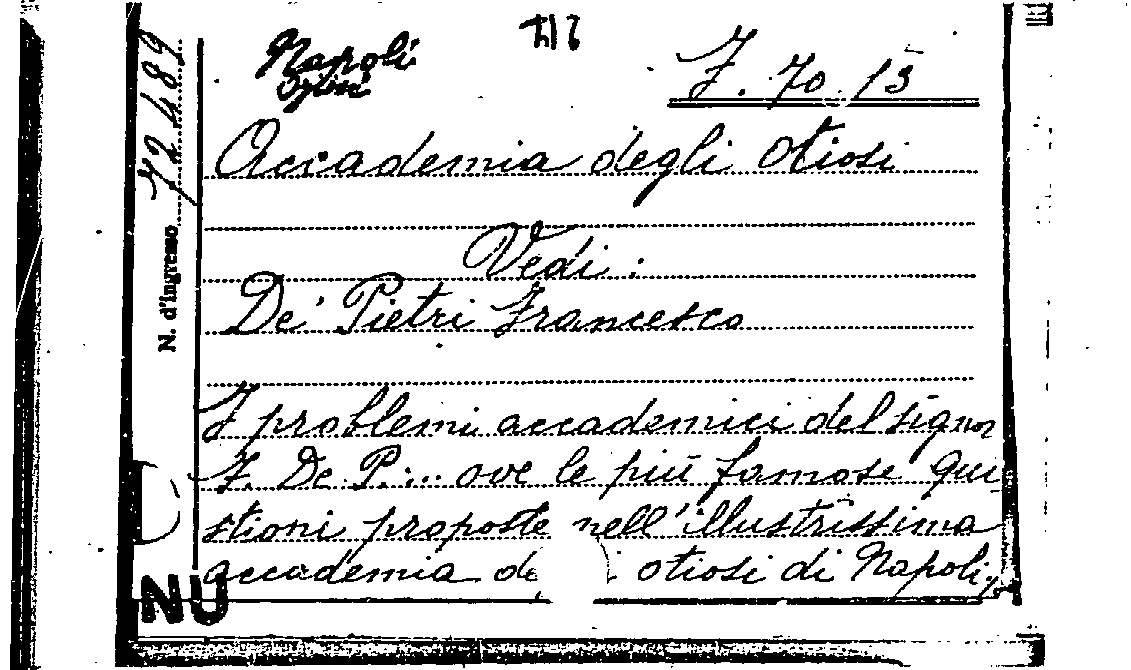 Napoli
F. 70. 13
Accademia degli Otiosi
Vedi :
De' Pietri Francesco
I problemi accademici del signor
F. De P.:.. ove le più famose qui
stioni proposte nell'illustrissima
accademia de otiosi di Napoli,
N. d'Ingresso 72489
NU